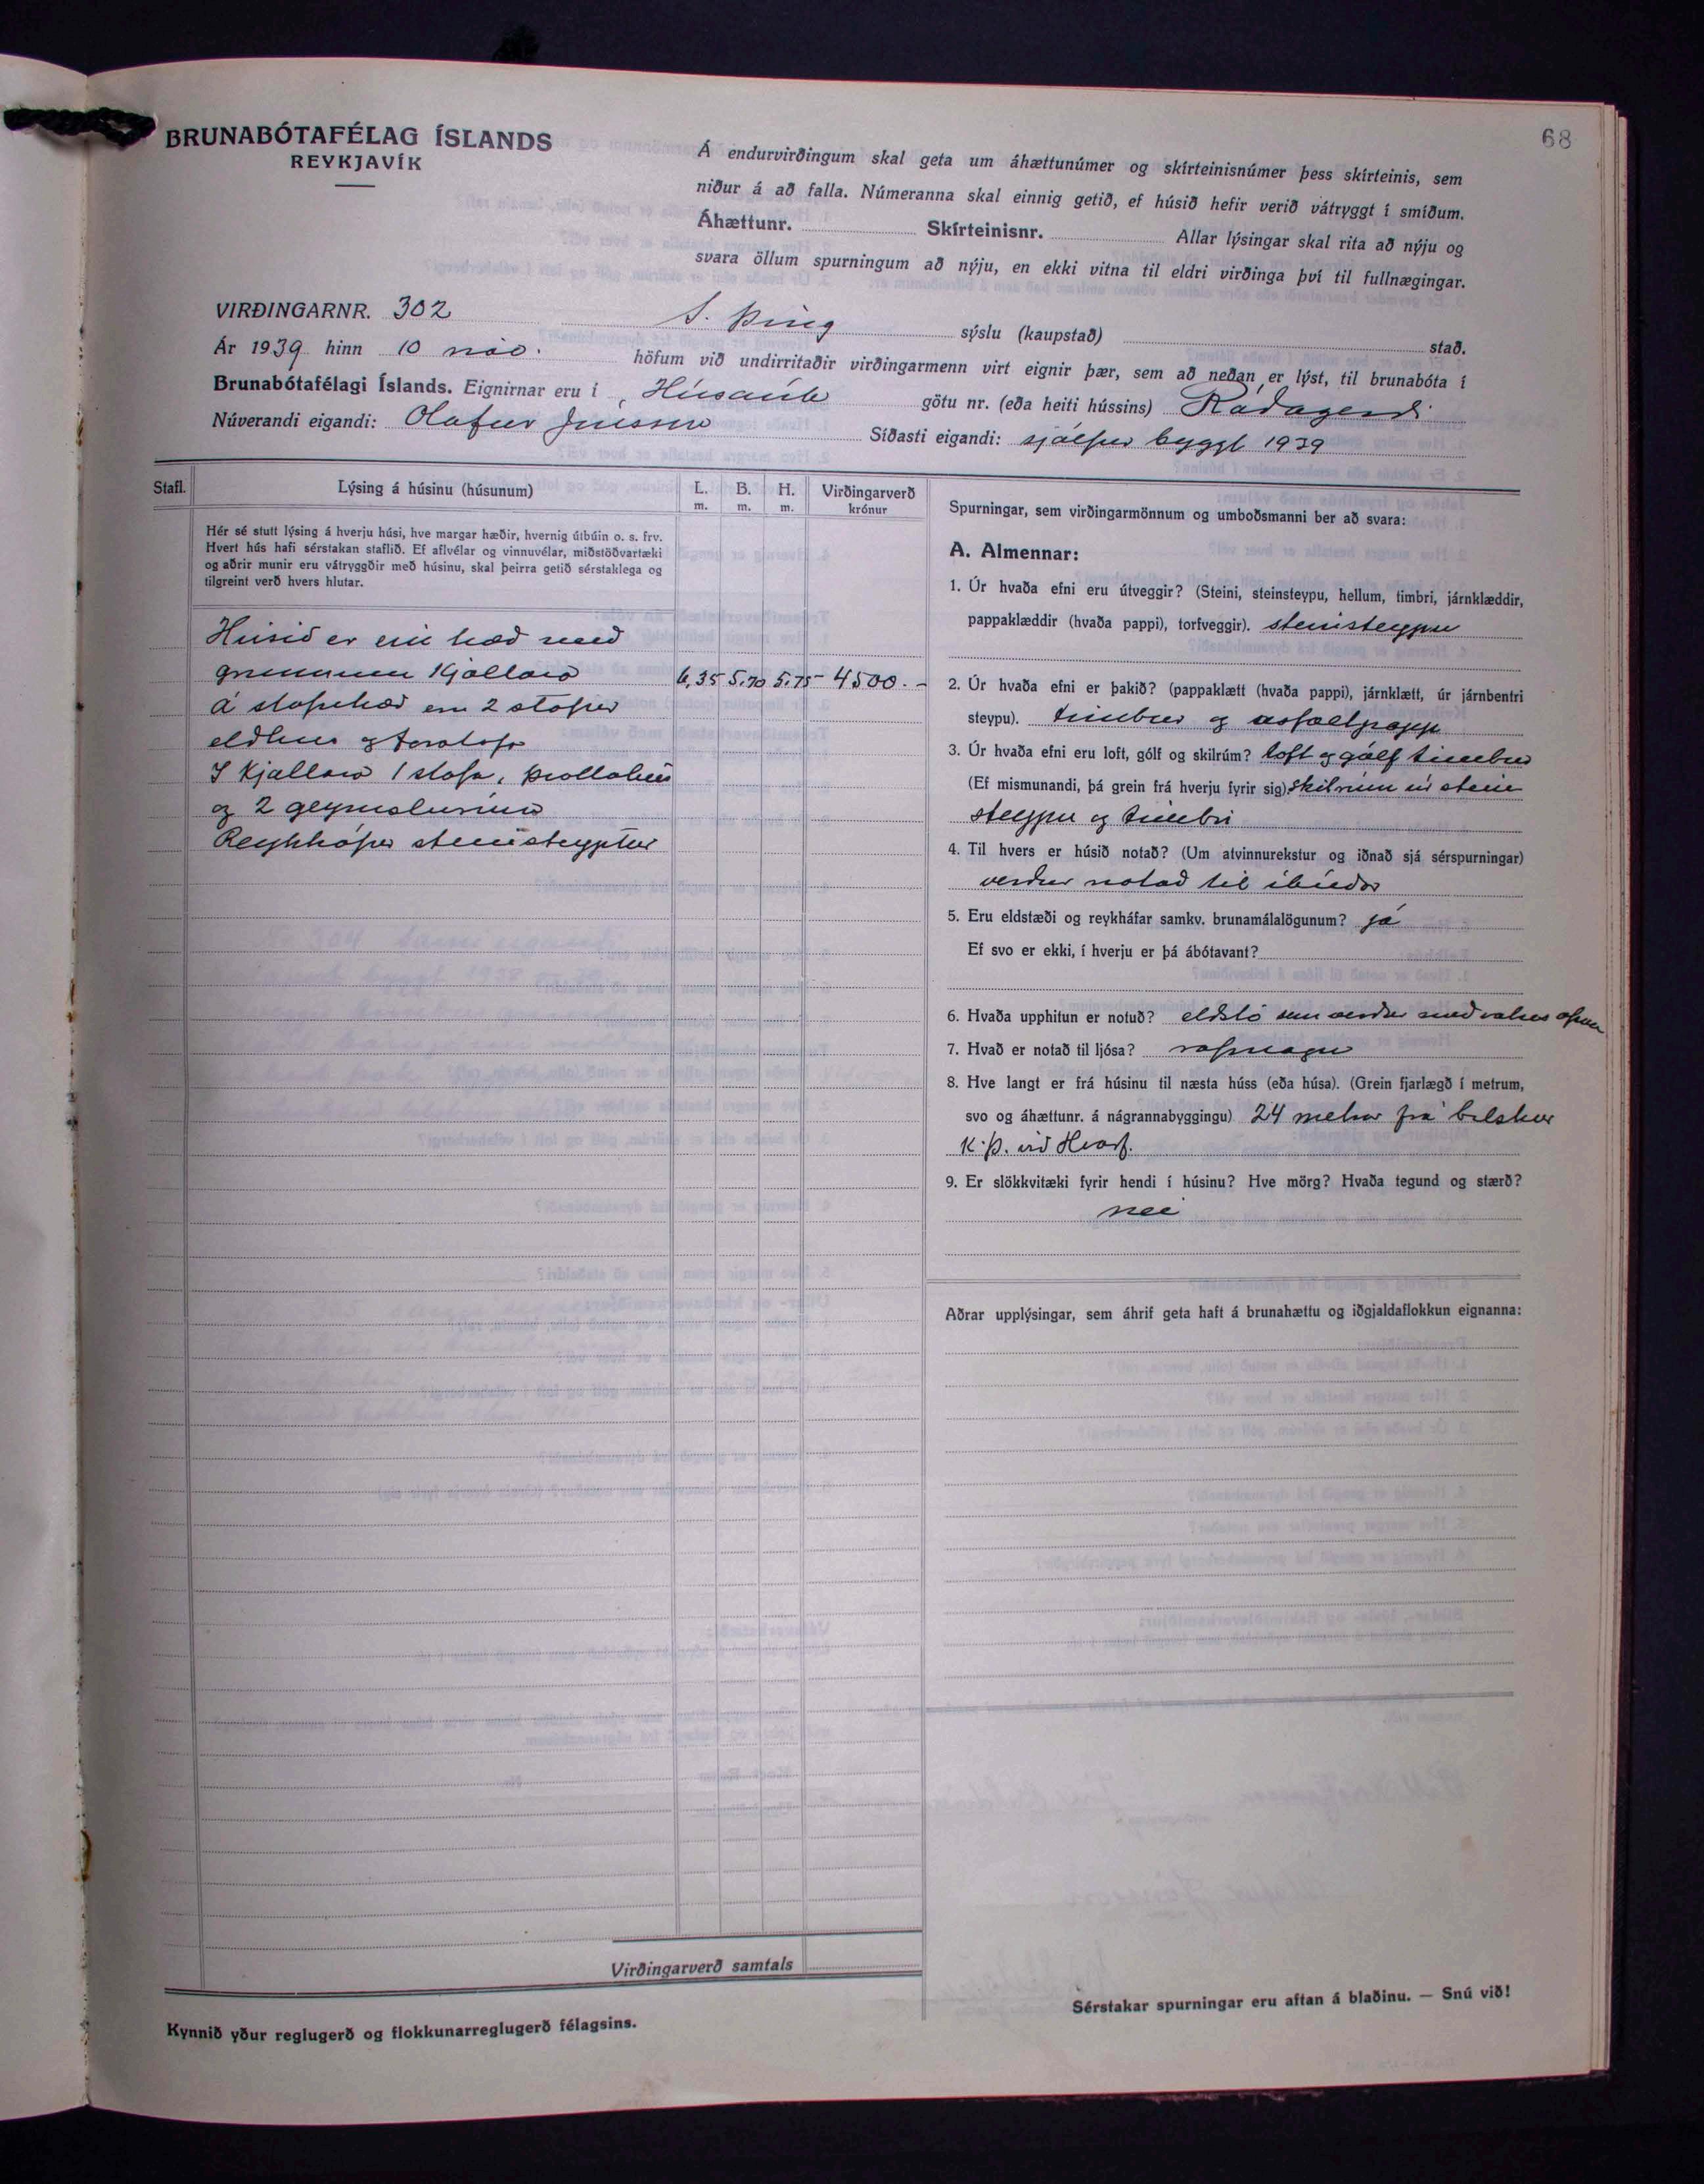 68
BRUNABÓTAFÉLAG ÍSLANDS
REYKJAVÍK
Á endurvirðingum skal geta um áhættunúmer og skírteinisnúmer þess skírteinis, sem
niður á að falla. Númeranna skal einnig getið, ef húsið hefir verið vátryggt í smíðum.
Áhættunr. Skírteinisnr. Allar lýsingar skal rita að nýju og
svara öllum spurningum að nýju, en ekki vitna til eldri virðinga því til fullnægingar.
VIRÐINGARNR. 302 S. Þing sýslu (kaupstað) stað.
Ár 1939 hinn 10 nóv. höfum við undirritaðir virðingarmenn virt eignir þær, sem að neðan er lýst, til brunabóta í
Brunabótafélagi Íslands. Eignirnar eru í Húsavík götu nr. (eða heiti hússins) Ráðagerði
Núverandi eigandi: Olafur Síðasti eigandi: sjálfur byggt 1939
Stafl. Lýsing á húsinu (húsunum) L. m. B. m. H. m. Virðingarverð krónur
Hér sé stutt lýsing á hverju húsi, hve margar hæðir, hvernig útbúin o. s. frv.
Hvert hús hafi sérstakan staflið. Ef aflvélar og vinnuvélar, miðstöðvartæki
og aðrir munir eru vátryggðir með húsinu, skal þeirra getið sérstaklega og
tilgreint verð hvers hlutar.
Húsið er ein hæð með
grunnum Kjallara 6,35 5.70 5.75 4500.-
á stofuhæð eru 2 stofur
eldhús og forstofa
Í Kjallara 1 stofa, þvottahús
og 2 geymslurúm
Reykháfur steinsteyptur
Virðingarverð samtals
Kynnið yður reglugerð og flokkunarreglugerð félagsins.
Spurningar, sem virðingarmönnum og umboðsmanni ber að svara:
A. Almennar:
1. Úr hvaða efni eru útveggir? (Steini, steinsteypu, hellum, timbri, járnklæddir,
pappaklæddir (hvaða pappi), torfveggir). steinsteypu
2. Úr hvaða efni er þakið? (pappaklætt (hvaða pappi), járnklætt, úr járnbentri
steypu). timbur og asfaltpapp
3. Úr hvaða efni eru loft, gólf og skilrúm? loft og gólf timbur
(Ef mismunandi, þá grein frá hverju fyrir sig). skilrúm úr stein
steypu og timbri
4. Til hvers er húsið notað? (Um atvinnurekstur og iðnað sjá sérspurningar)
verður notað til íbúðar
5. Eru eldstæði og reykháfar samkv. brunamálalögunum? já
Ef svo er ekki, í hverju er þá ábótavant?
6. Hvaða upphitun er notuð? eldstó sem verður með vatns ofnum
7. Hvað er notað til ljósa? rafmagn
8. Hve langt er frá húsinu til næsta húss (eða húsa). (Grein fjarlægð í metrum,
svo og áhættunr. á nágrannabyggingu) 24 metrar frá bílskúr
K.Þ. við Hvarf.
9. Er slökkvitæki fyrir hendi í húsinu? Hve mörg? Hvaða tegund og stærð?
nei
Aðrar upplýsingar, sem áhrif geta haft á brunahættu og iðgjaldaflokkun eignanna:
Sérstakar spurningar eru aftan á blaðinu. — Snú við!